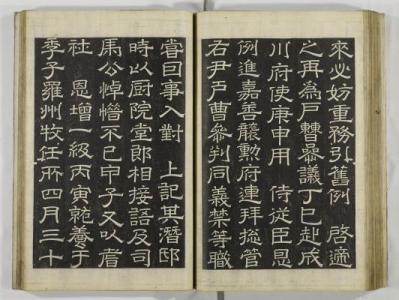 來必妨重務引舊例　啓適
之再為戶曹叅議丁巳赴成
川府使庚申用　侍從臣恩
例進嘉善龍驤府連拜摠管
右尹戶曹叅判同義禁等職
嘗因事入對　上記其潛邸
時以厨院堂郎相接語及司
馬公悼惜不已甲子又以耆
社　恩增一級丙寅就養于
季子羅州牧任所四月三十